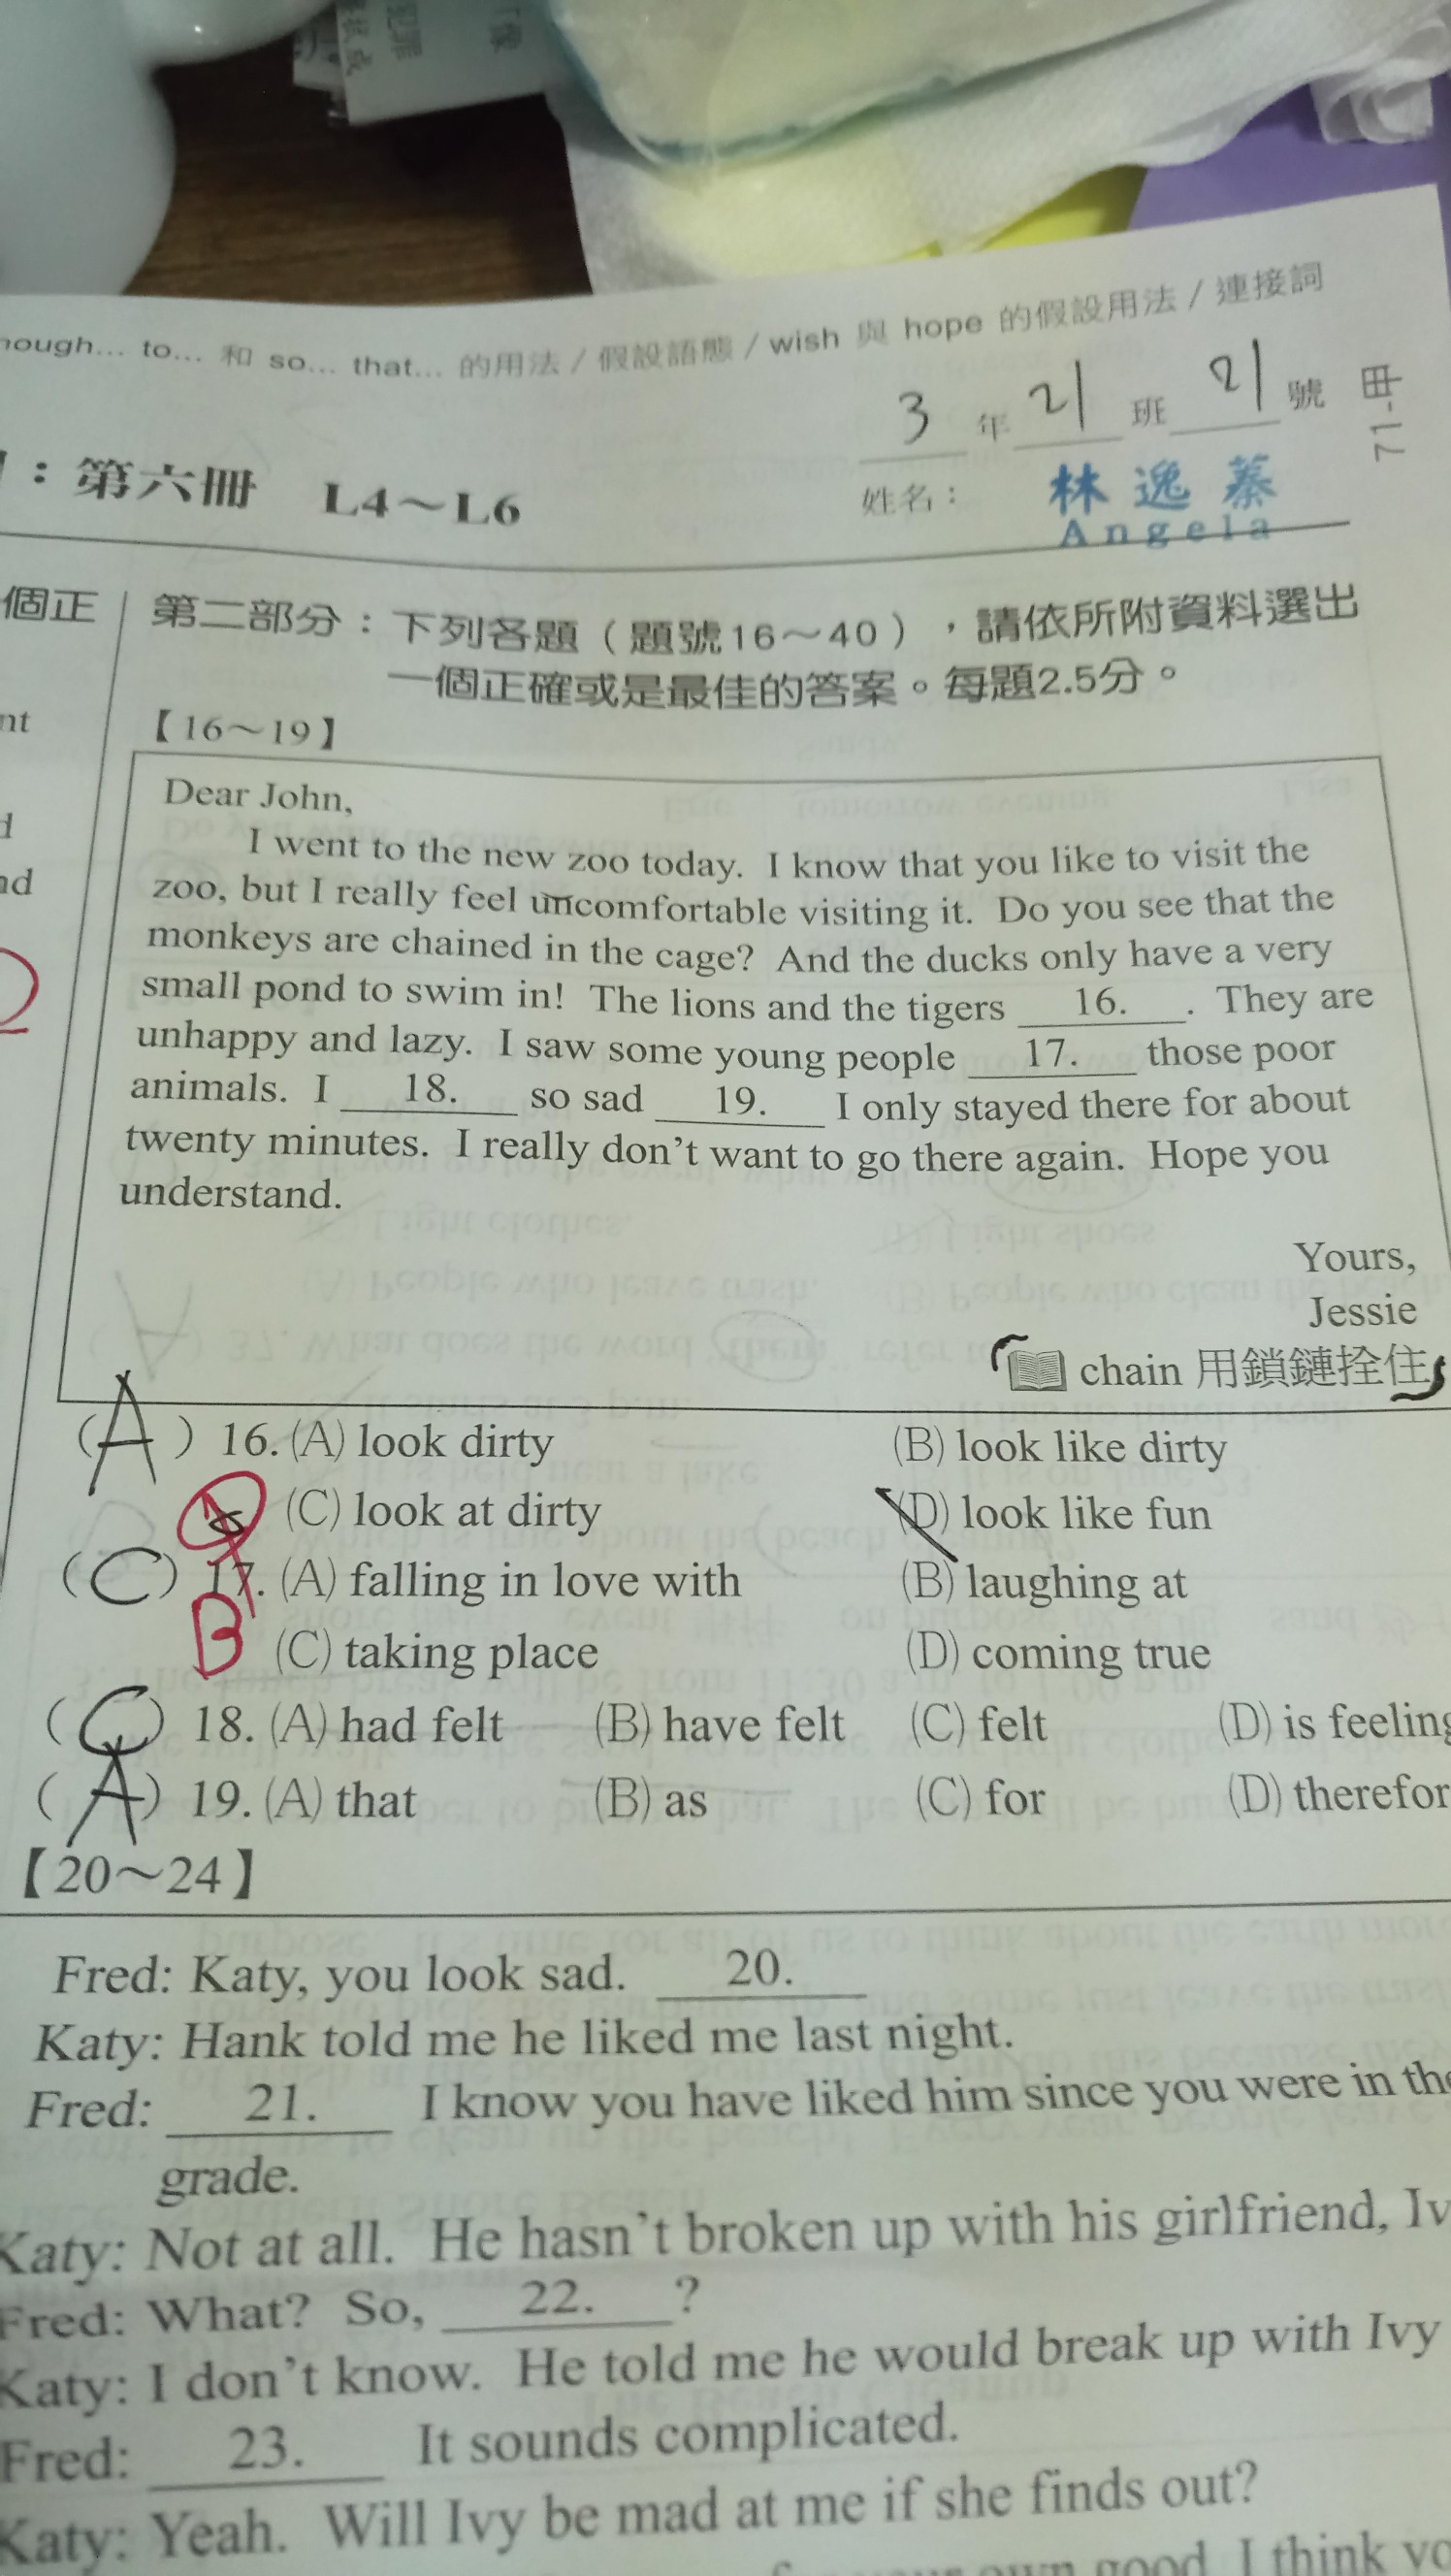 to... 和 so... that... 的用法 / 假設語態 / wish 與 hope 的假設用法 / 連接詞
3 年 21 班 21 號
71-甲
：第六冊 L4～L6
姓名：林逸蓁
Angela
個正
第二部分：下列各題（題號16～40），請依所附資料選出
一個正確或是最佳的答案。每題2.5分。
【16～19】
Dear John,
I went to the new zoo today. I know that you like to visit the
zoo, but I really feel uncomfortable visiting it. Do you see that the
monkeys are chained in the cage? And the ducks only have a very
small pond to swim in! The lions and the tigers 16. . They are
unhappy and lazy. I saw some young people 17. those poor
animals. I 18. so sad 19. I only stayed there for about
twenty minutes. I really don't want to go there again. Hope you
understand.
Yours,
Jessie
chain 用鎖鏈拴住
(A) 16. (A) look dirty (B) look like dirty
(C) look at dirty (D) look like fun
(C) 17. (A) falling in love with (B) laughing at
B (C) taking place (D) coming true
(C) 18. (A) had felt (B) have felt (C) felt (D) is feeling
(A) 19. (A) that (B) as (C) for (D) therefor
【20～24】
Fred: Katy, you look sad. 20.
Katy: Hank told me he liked me last night.
Fred: 21. I know you have liked him since you were in the
grade.
Katy: Not at all. He hasn't broken up with his girlfriend, Iv
Fred: What? So, 22. ?
Katy: I don't know. He told me he would break up with Ivy
Fred: 23. It sounds complicated.
Katy: Yeah. Will Ivy be mad at me if she finds out?
own good. I think